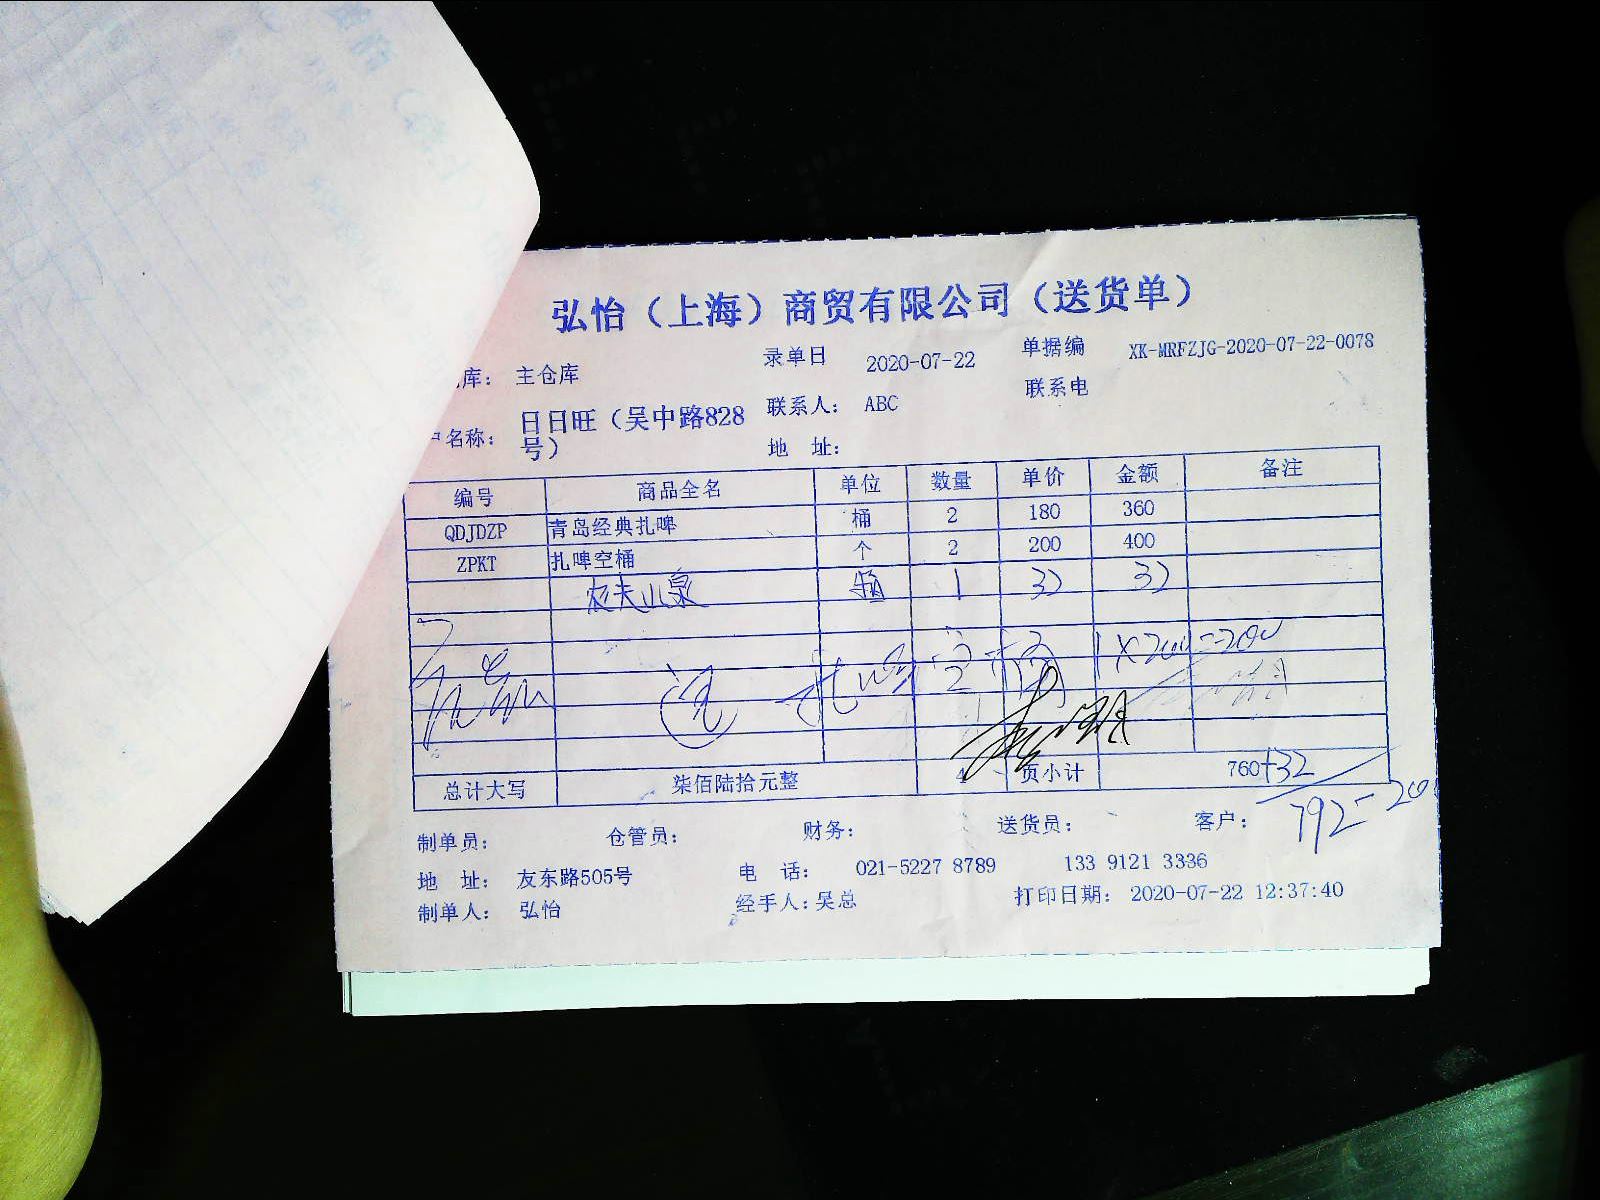 弘怡（上海）商贸有限公司（送货单）
库： 主仓库 录单日 2020-07-22 单据编 XK-MRFZJG-2020-07-22-0078
名称： 日日旺（吴中路828号） 联系人： ABC 联系电
地 址：
编号 商品全名 单位 数量 单价 金额 备注
QDJDZP 青岛经典扎啤 桶 2 180 360
ZPKT 扎啤空桶 个 2 200 400
农夫山泉 箱 1 32 32
1×200=200
总计大写 柒佰陆拾元整 4 页小计 760+32
792-200
制单员： 仓管员： 财务： 送货员： 客户：
地 址： 友东路505号 电 话： 021-5227 8789 133 9121 3336
制单人： 弘怡 经手人：吴总 打印日期： 2020-07-22 12:37:40